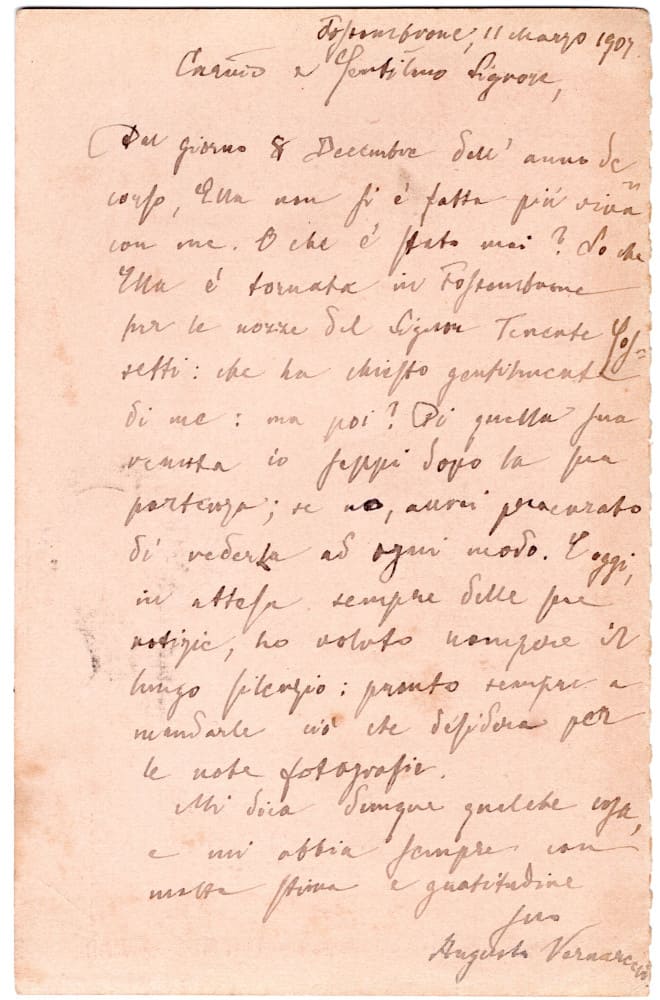 Fossombrone, 11 Marzo 1907
Car.mo e Gentil.mo Signore,
Dal giorno 8 Decembre dell' anno de
corso, Ella non si è fatta più viva
con me. O che è stato mai? So che
Ella è tornata in Fossombrone
per le nozze del Signor Tenente
setti: che ha chiesto gentilmente
di me: ma poi? Di quella sua
venuta io seppi dopo la sua
partenza; se no, avrei procurato
di vederla ad ogni modo. E oggi,
in attesa sempre delle sue
notizie, ho voluto rompere il
lungo silenzio: pronto sempre a
mandarle ciò che desidera per
le note fotografie.
Mi dica dunque qualche cosa,
e mi abbia sempre con
molta stima e gratitudine
suo
Augusto Vernarecci